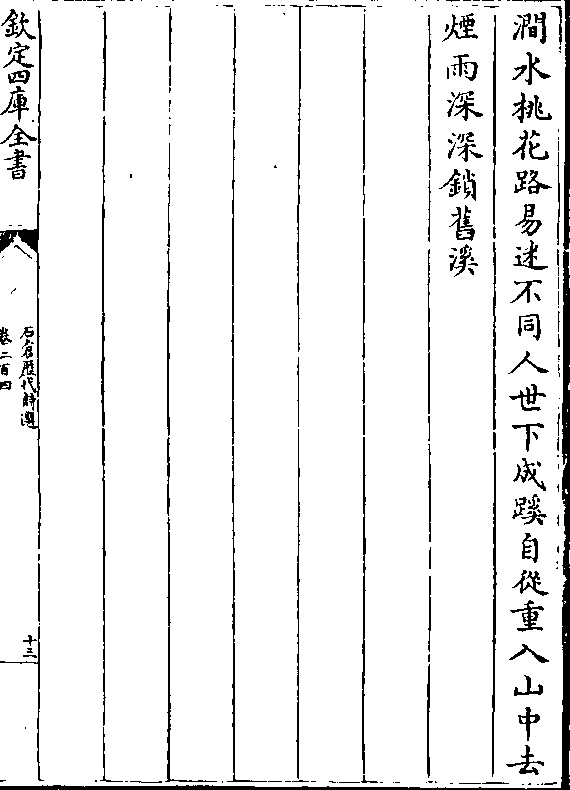 澗水桃花路易迷不同人世下成蹊自從重入山中去
煙雨深深鎖舊溪
欽定四庫全書
石倉歷代詩選
卷二百四
十三